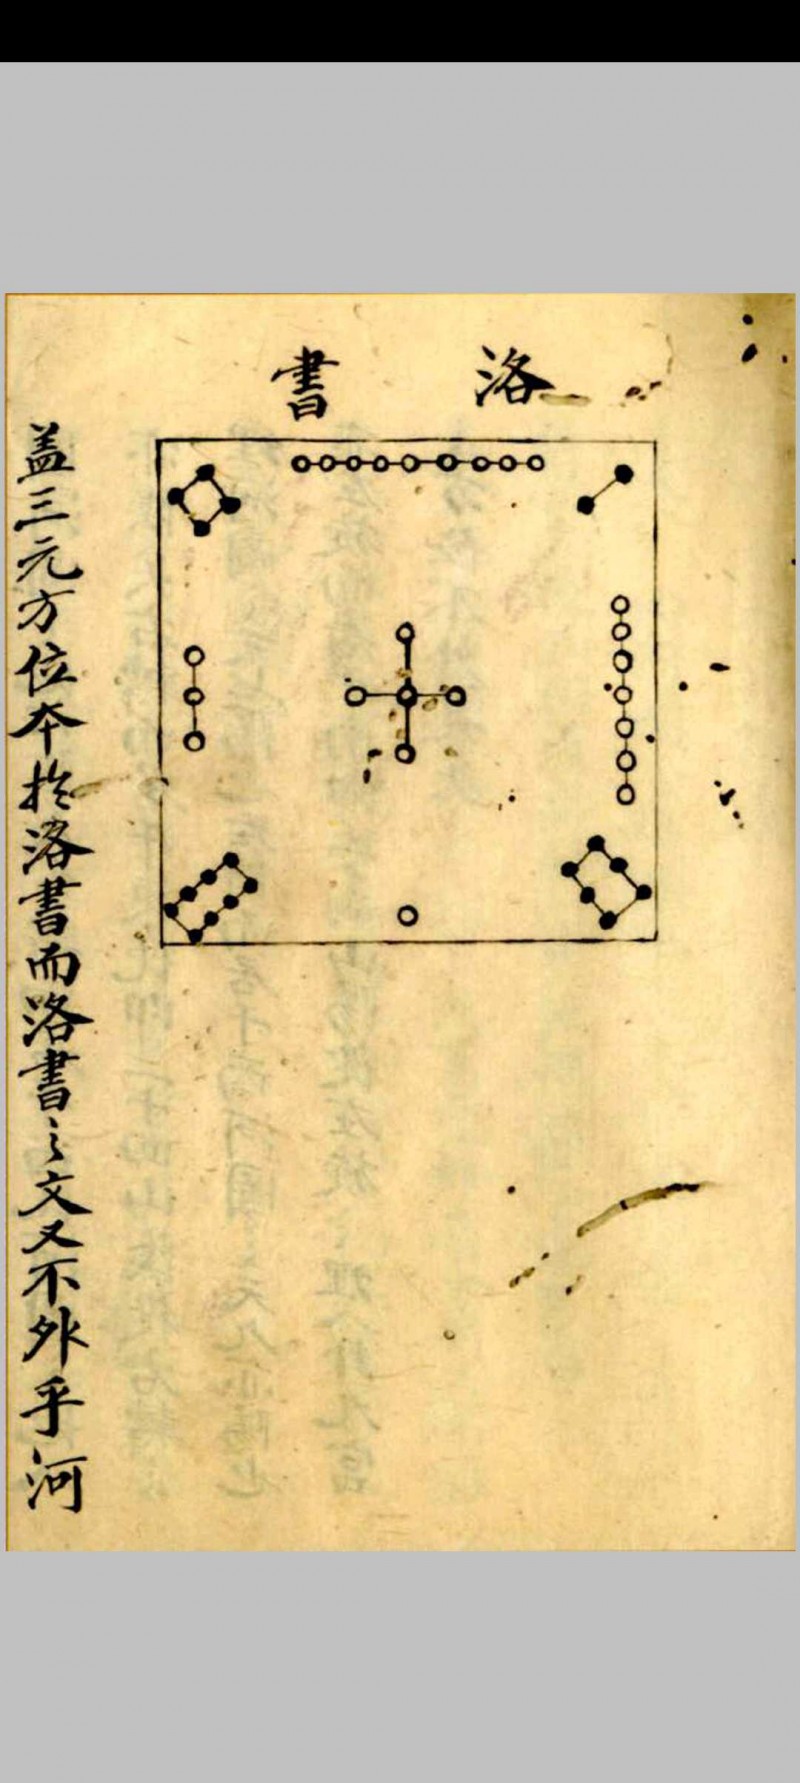 洛書
盖三元方位本於洛書而洛書之文又不外乎河